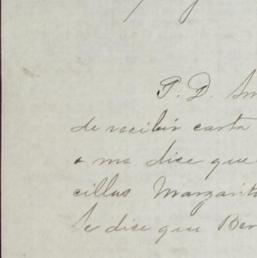 P. D.
de recibir carta
a me dice que
cillas Margarit
le dice que Ber